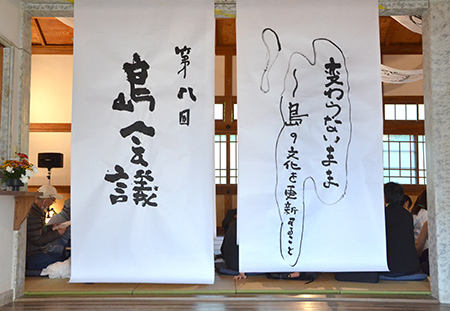 変わらないまま
〜島の文化を更新すること
第八回
島会議